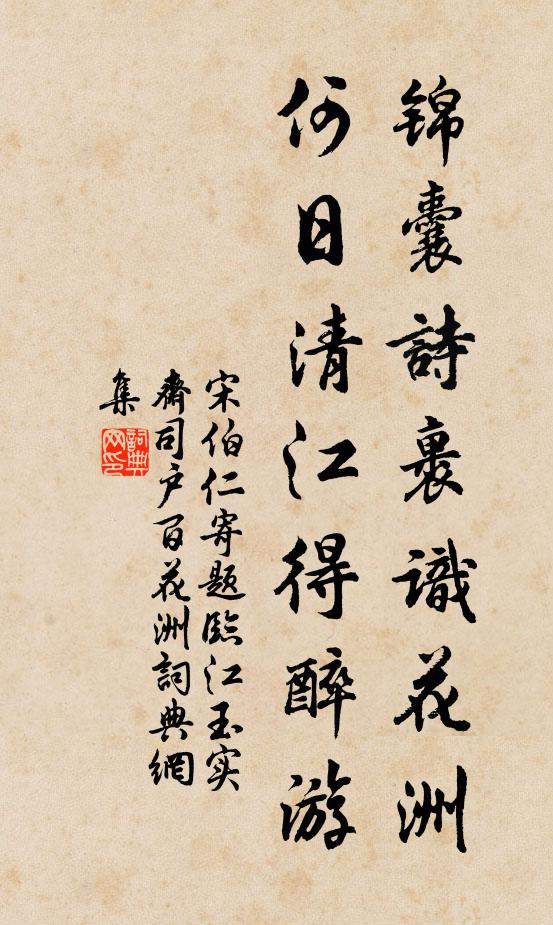 锦囊詩裏識花洲
何日清江得醉游
宋伯仁寄題臨江玉实
齋司户百花洲詞典網
集
詞典
网印